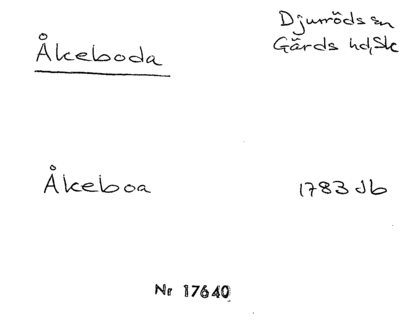 Åkeboda
Djurröds sn
Gärds hd, Sk
Åkeboa
1783 Jb
Nr 17640